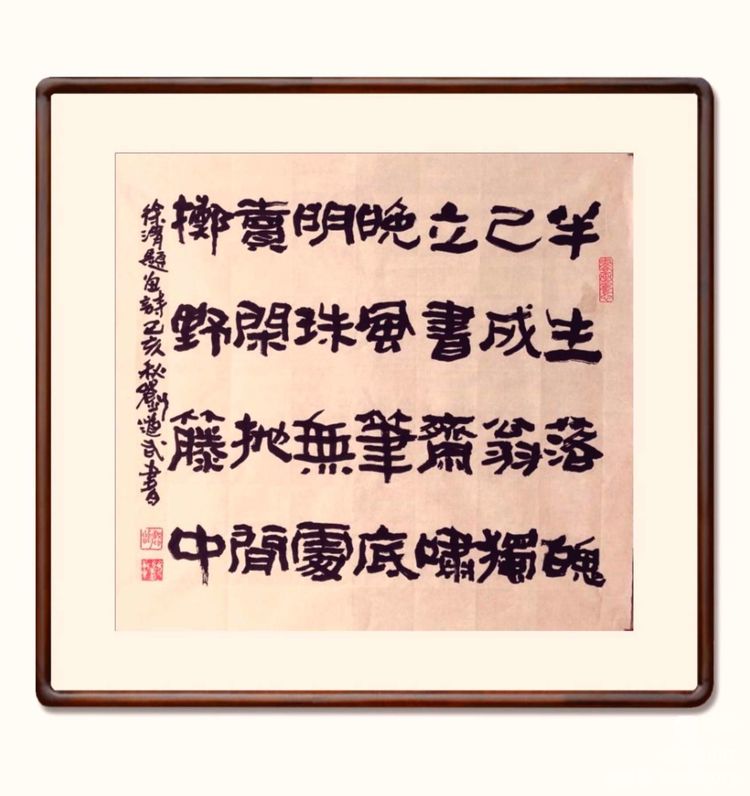 半生落魄
已成翁獨
立書齋嘯
晚風筆底
明珠無處
賣閑抛間
擲野籐中
徐渭題畫詩己亥秋劉道武書